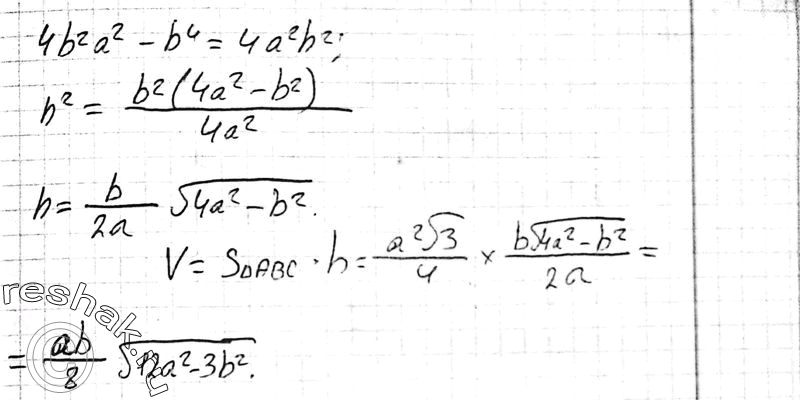 4b²a² - b⁴ = 4a²h²;
h² = b²(4a² - b²) / 4a²
h = b / 2a √4a² - b².
V = S△ABC · h = a²√3 / 4 × b√4a² - b² / 2a =
= ab / 8 √12a² - 3b².
reshak.ru